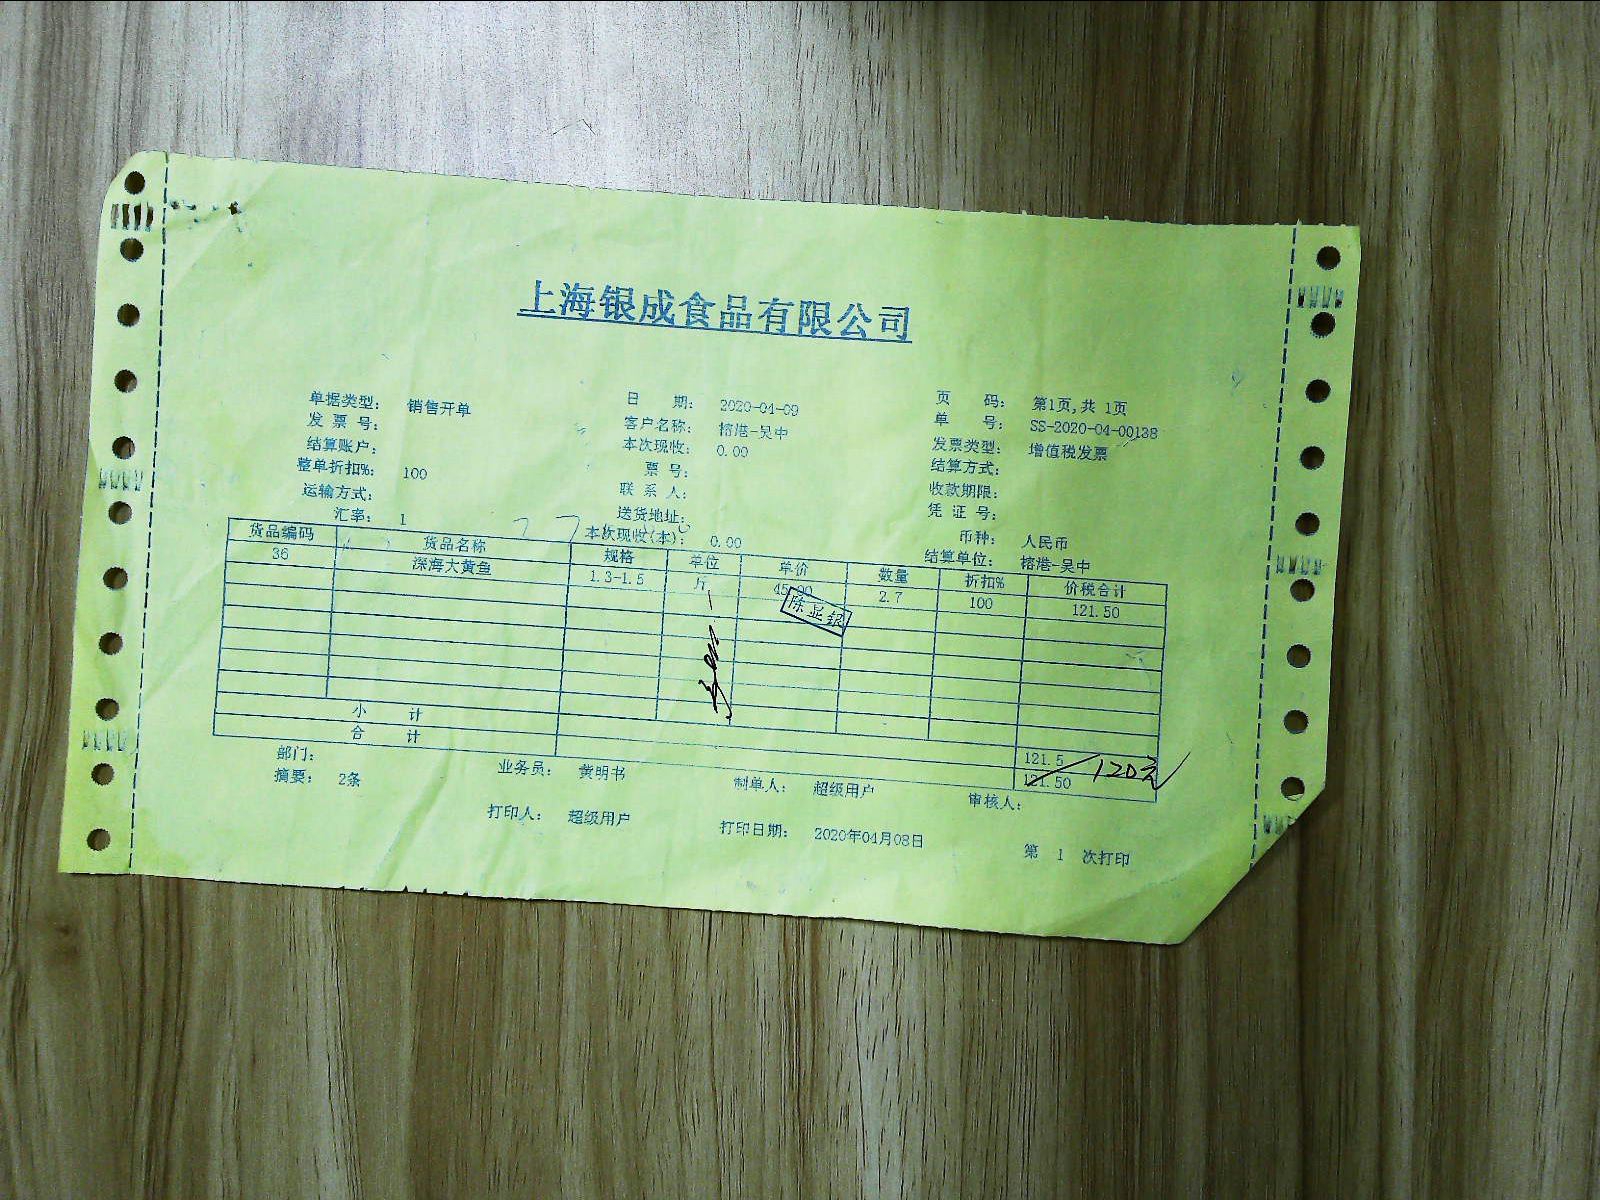 上海银成食品有限公司
单据类型: 销售开单 日 期: 2020-04-09 页 码: 第1页,共 1页
发 票 号: 客户名称: 榕港-吴中 单 号: SS-2020-04-00138
结算账户: 本次现收: 0.00 发票类型: 增值税发票
整单折扣%: 100 票 号: 结算方式:
运输方式: 联 系 人: 收款期限:
汇率: 1 送货地址: 凭 证 号:
本次现收(本): 0.00 币种: 人民币
结算单位: 榕港-吴中
货品编码 货品名称 规格 单位 单价 数量 折扣% 价税合计
36 深海大黄鱼 1.3-1.5 斤 45.00 2.7 100 121.50
陈显银
小 计 121.5
合 计 121.50 120元
部门: 业务员: 黄明书 制单人: 超级用户 审核人:
摘要: 2条
打印人: 超级用户 打印日期: 2020年04月08日 第 1 次打印